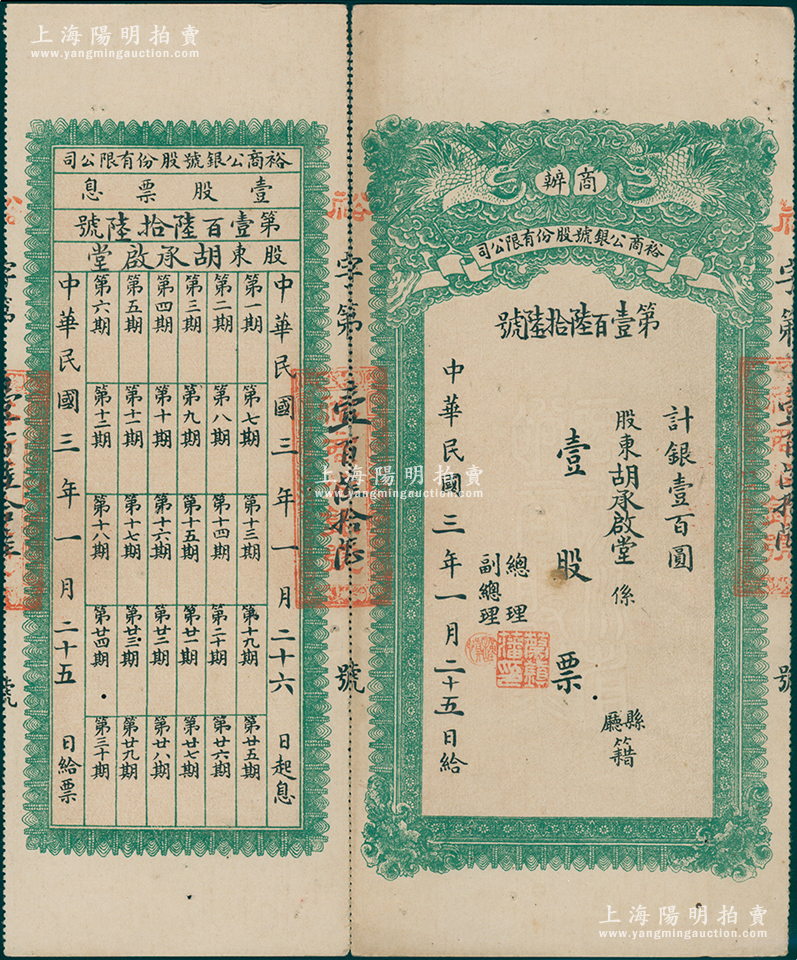 上海陽明拍賣
www.yangmingauction.com
上海陽明拍賣
www.yangmingauction.com
商辦
裕商公銀號股份有限公司
第壹百陸拾陸號
計銀壹百圓
股東胡承啟堂係
縣
廳
籍
壹股票
總理
副總理
中華民國三年一月二十五日給
裕
字第壹百陸拾陸號
裕商公銀號股份有限公司
壹股票息
第壹百陸拾陸號
股東胡承啟堂
中華民國三年一月二十六日起息
第一期
第七期
第十三期
第十九期
第廿五期
第二期
第八期
第十四期
第二十期
第廿六期
第三期
第九期
第十五期
第廿一期
第廿七期
第四期
第十期
第十六期
第廿二期
第廿八期
第五期
第十一期
第十七期
第廿三期
第廿九期
第六期
第十二期
第十八期
第廿四期
第三十期
中華民國三年一月二十五日給票
上海陽明拍賣
www.yangmingauction.com
上海陽明拍賣
www.yangmingauction.com